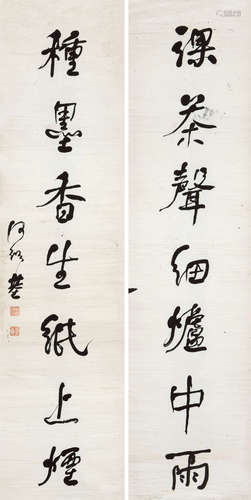 課茶聲細爐中雨
種墨香生紙上煙
何紹基